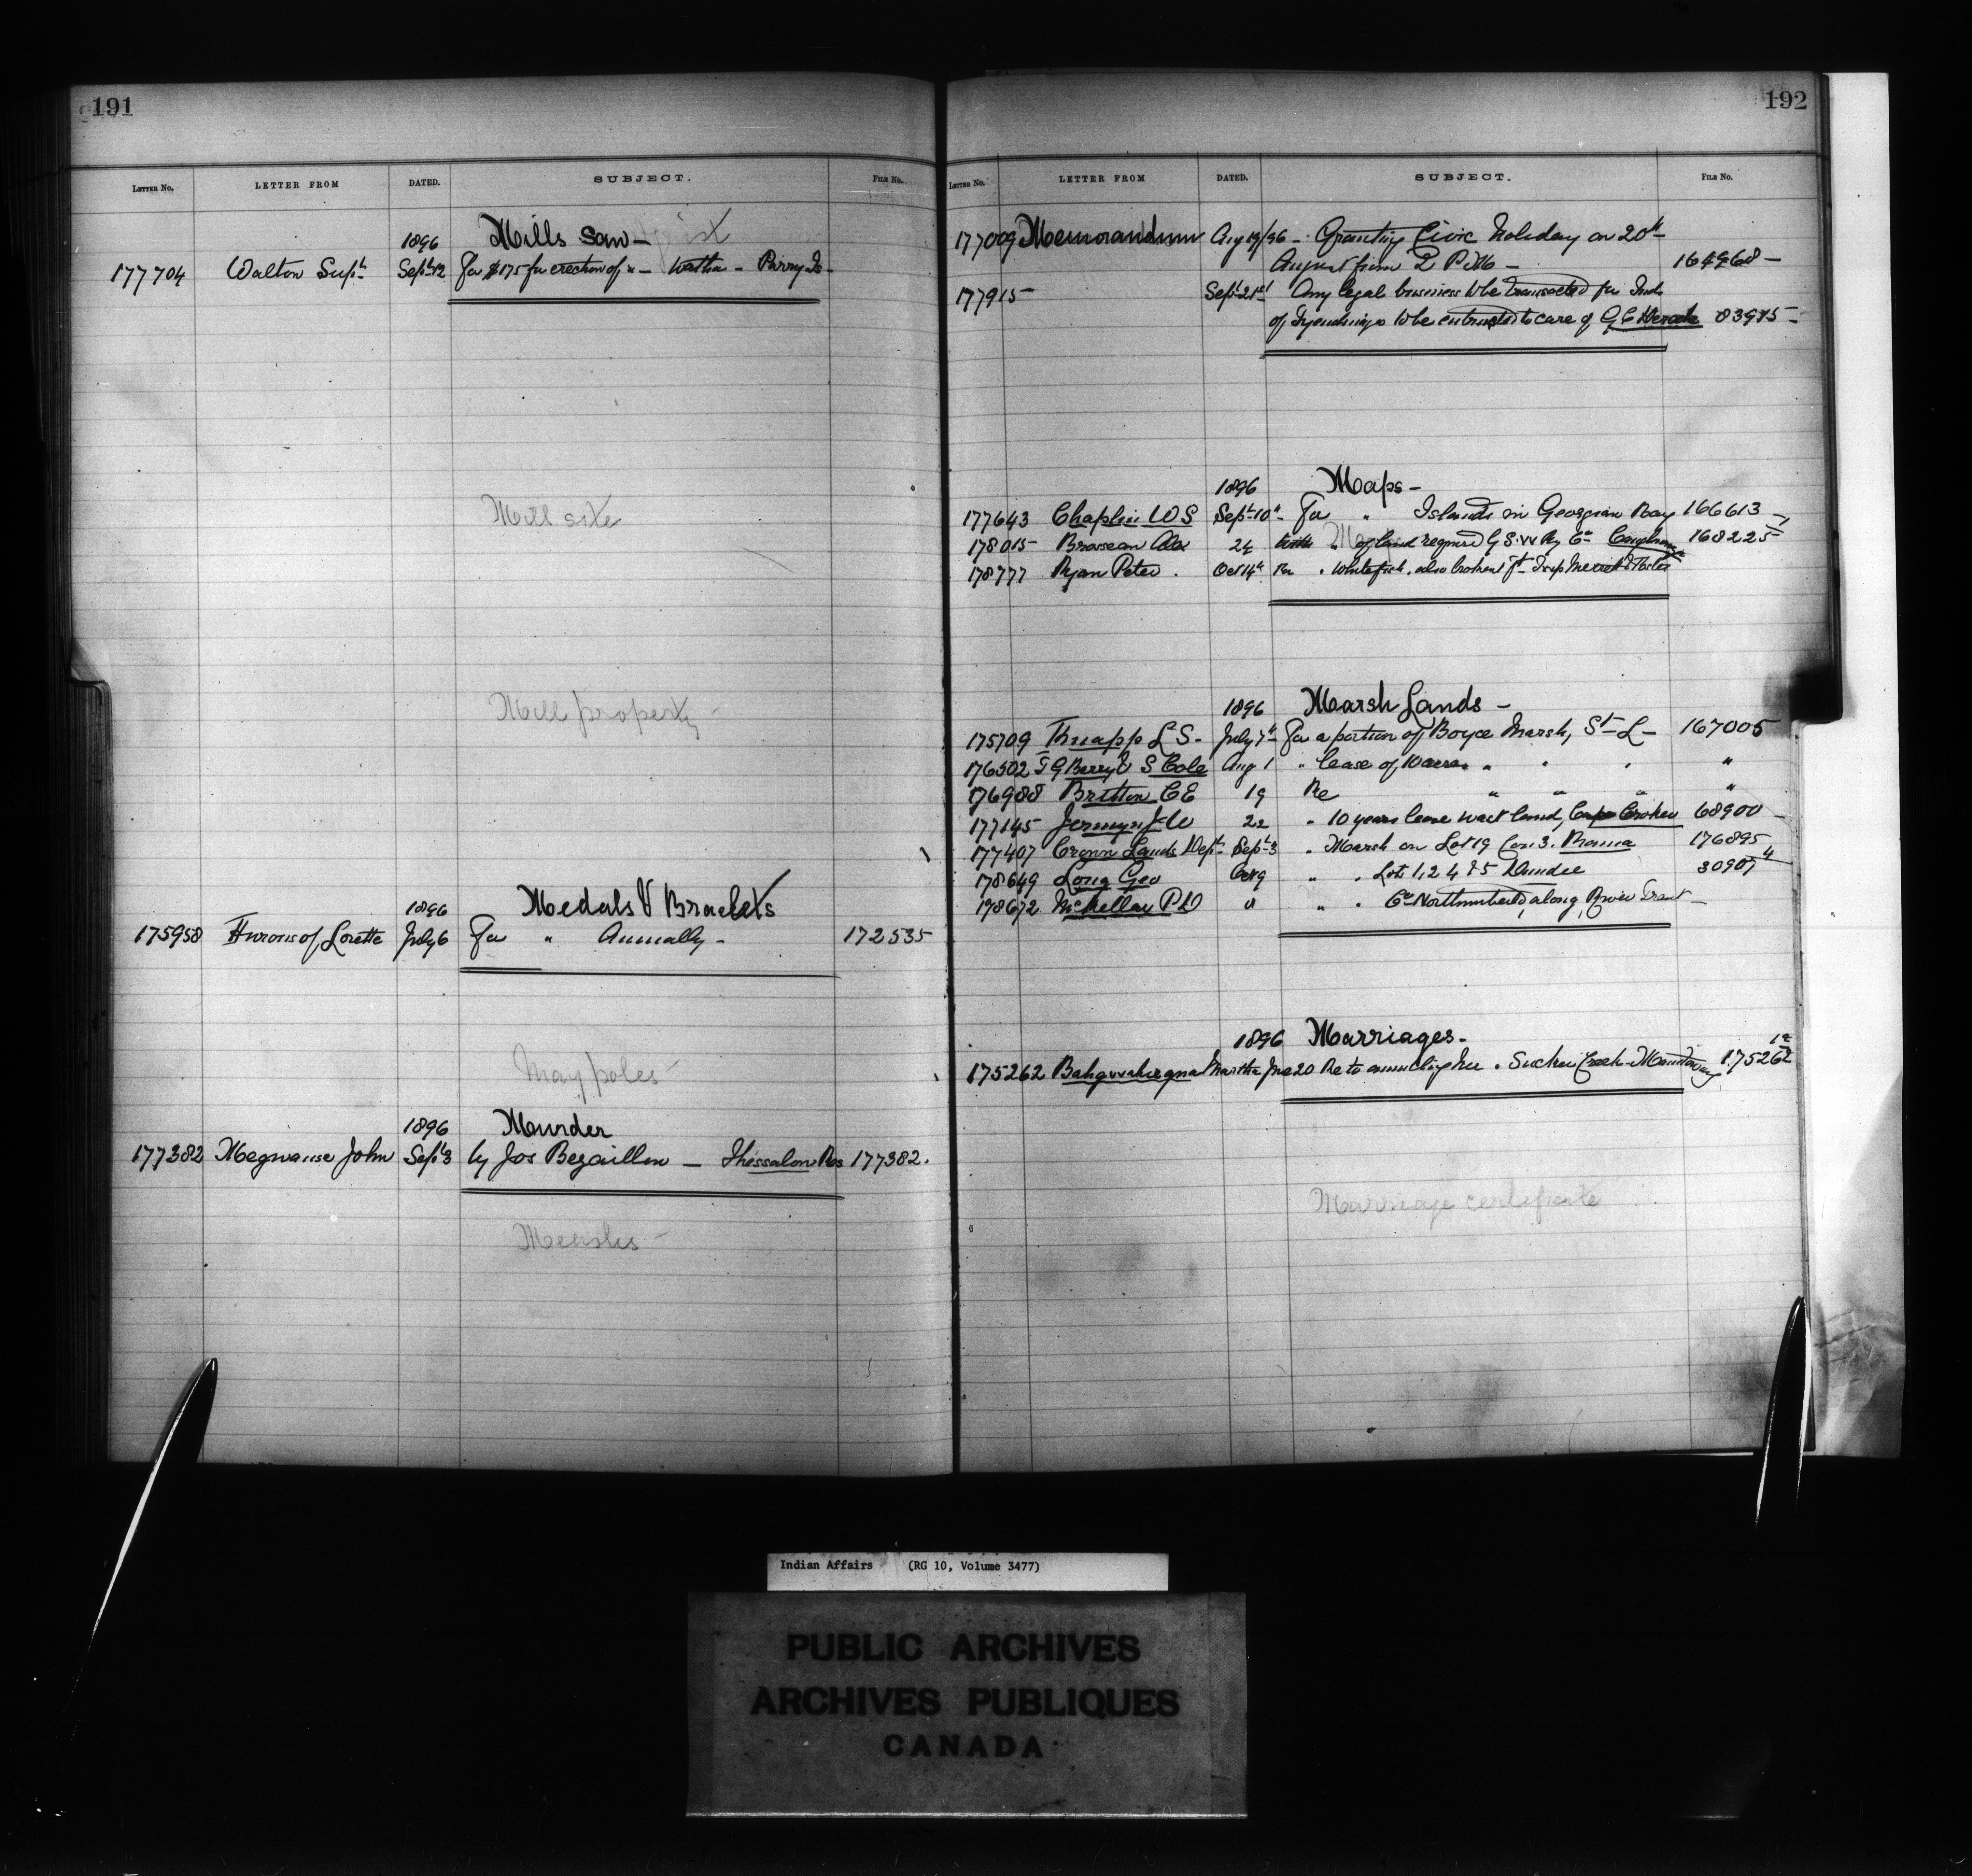 191
LETTER No. LETTER FROM DATED. SUBJECT. FILE No.
1896 Mills Saw —
177704 Walton Supt. Sept 12 For $175 for erection of " — — Parry Is —
Mill site
Mill property
1896 Medals & Bracelets
175958 Hurons of Lorette July 6 For " Annually — 172535
May poles
1896 Murder
177382 Megwause John Sept 3 by Jos Bezaillon — Thessalon Res 177382.
Measles
192
LETTER No. LETTER FROM DATED. SUBJECT. FILE No.
177009 Memorandum Aug 19/96 — Granting Civic Holiday on 20th
August from 2 P.M — 164968 —
177915 Sept 21st Any legal business to be transacted for Inds
of Tyendinaga to be entrusted to care of 83975 —
1896 Maps —
177643 Chaplin W S Sept 10th For " Islands in Georgian Bay 166613 —
178015 Brosseau Alex 24 " of land required G.S.W Ry Co 168225
178777 Ryan Peter . Oct 14th Re " Whitefish, also
1896 Marsh Lands —
175709 Knapp L S. July 7th For a portion of Boyce Marsh, St — L — 167005
176502 T G Berry & S Cole Aug 1 " lease of 10 acres " " " "
176988 Britton C E 19 Re " " " "
177145 Jermyn J W 22 " 10 years lease wet land, Cape Croker 68900 —
177407 Crown Lands Dept Sept 3 " Marsh on Lot 19 Con 3. Rama 176895
178649 Long Geo Oct 9 " " Lots 1, 2 4 & 5 Dundee 30907 4
178672 McKellar P D " " " Co Northumberland, along River Trent —
1896 Marriages.
175262 Martha June 20 Re to annulling her " Sucker Creek — 175262 1a
Marriage certificate
Indian Affairs (RG 10, Volume 3477)
PUBLIC ARCHIVES
ARCHIVES PUBLIQUES
CANADA